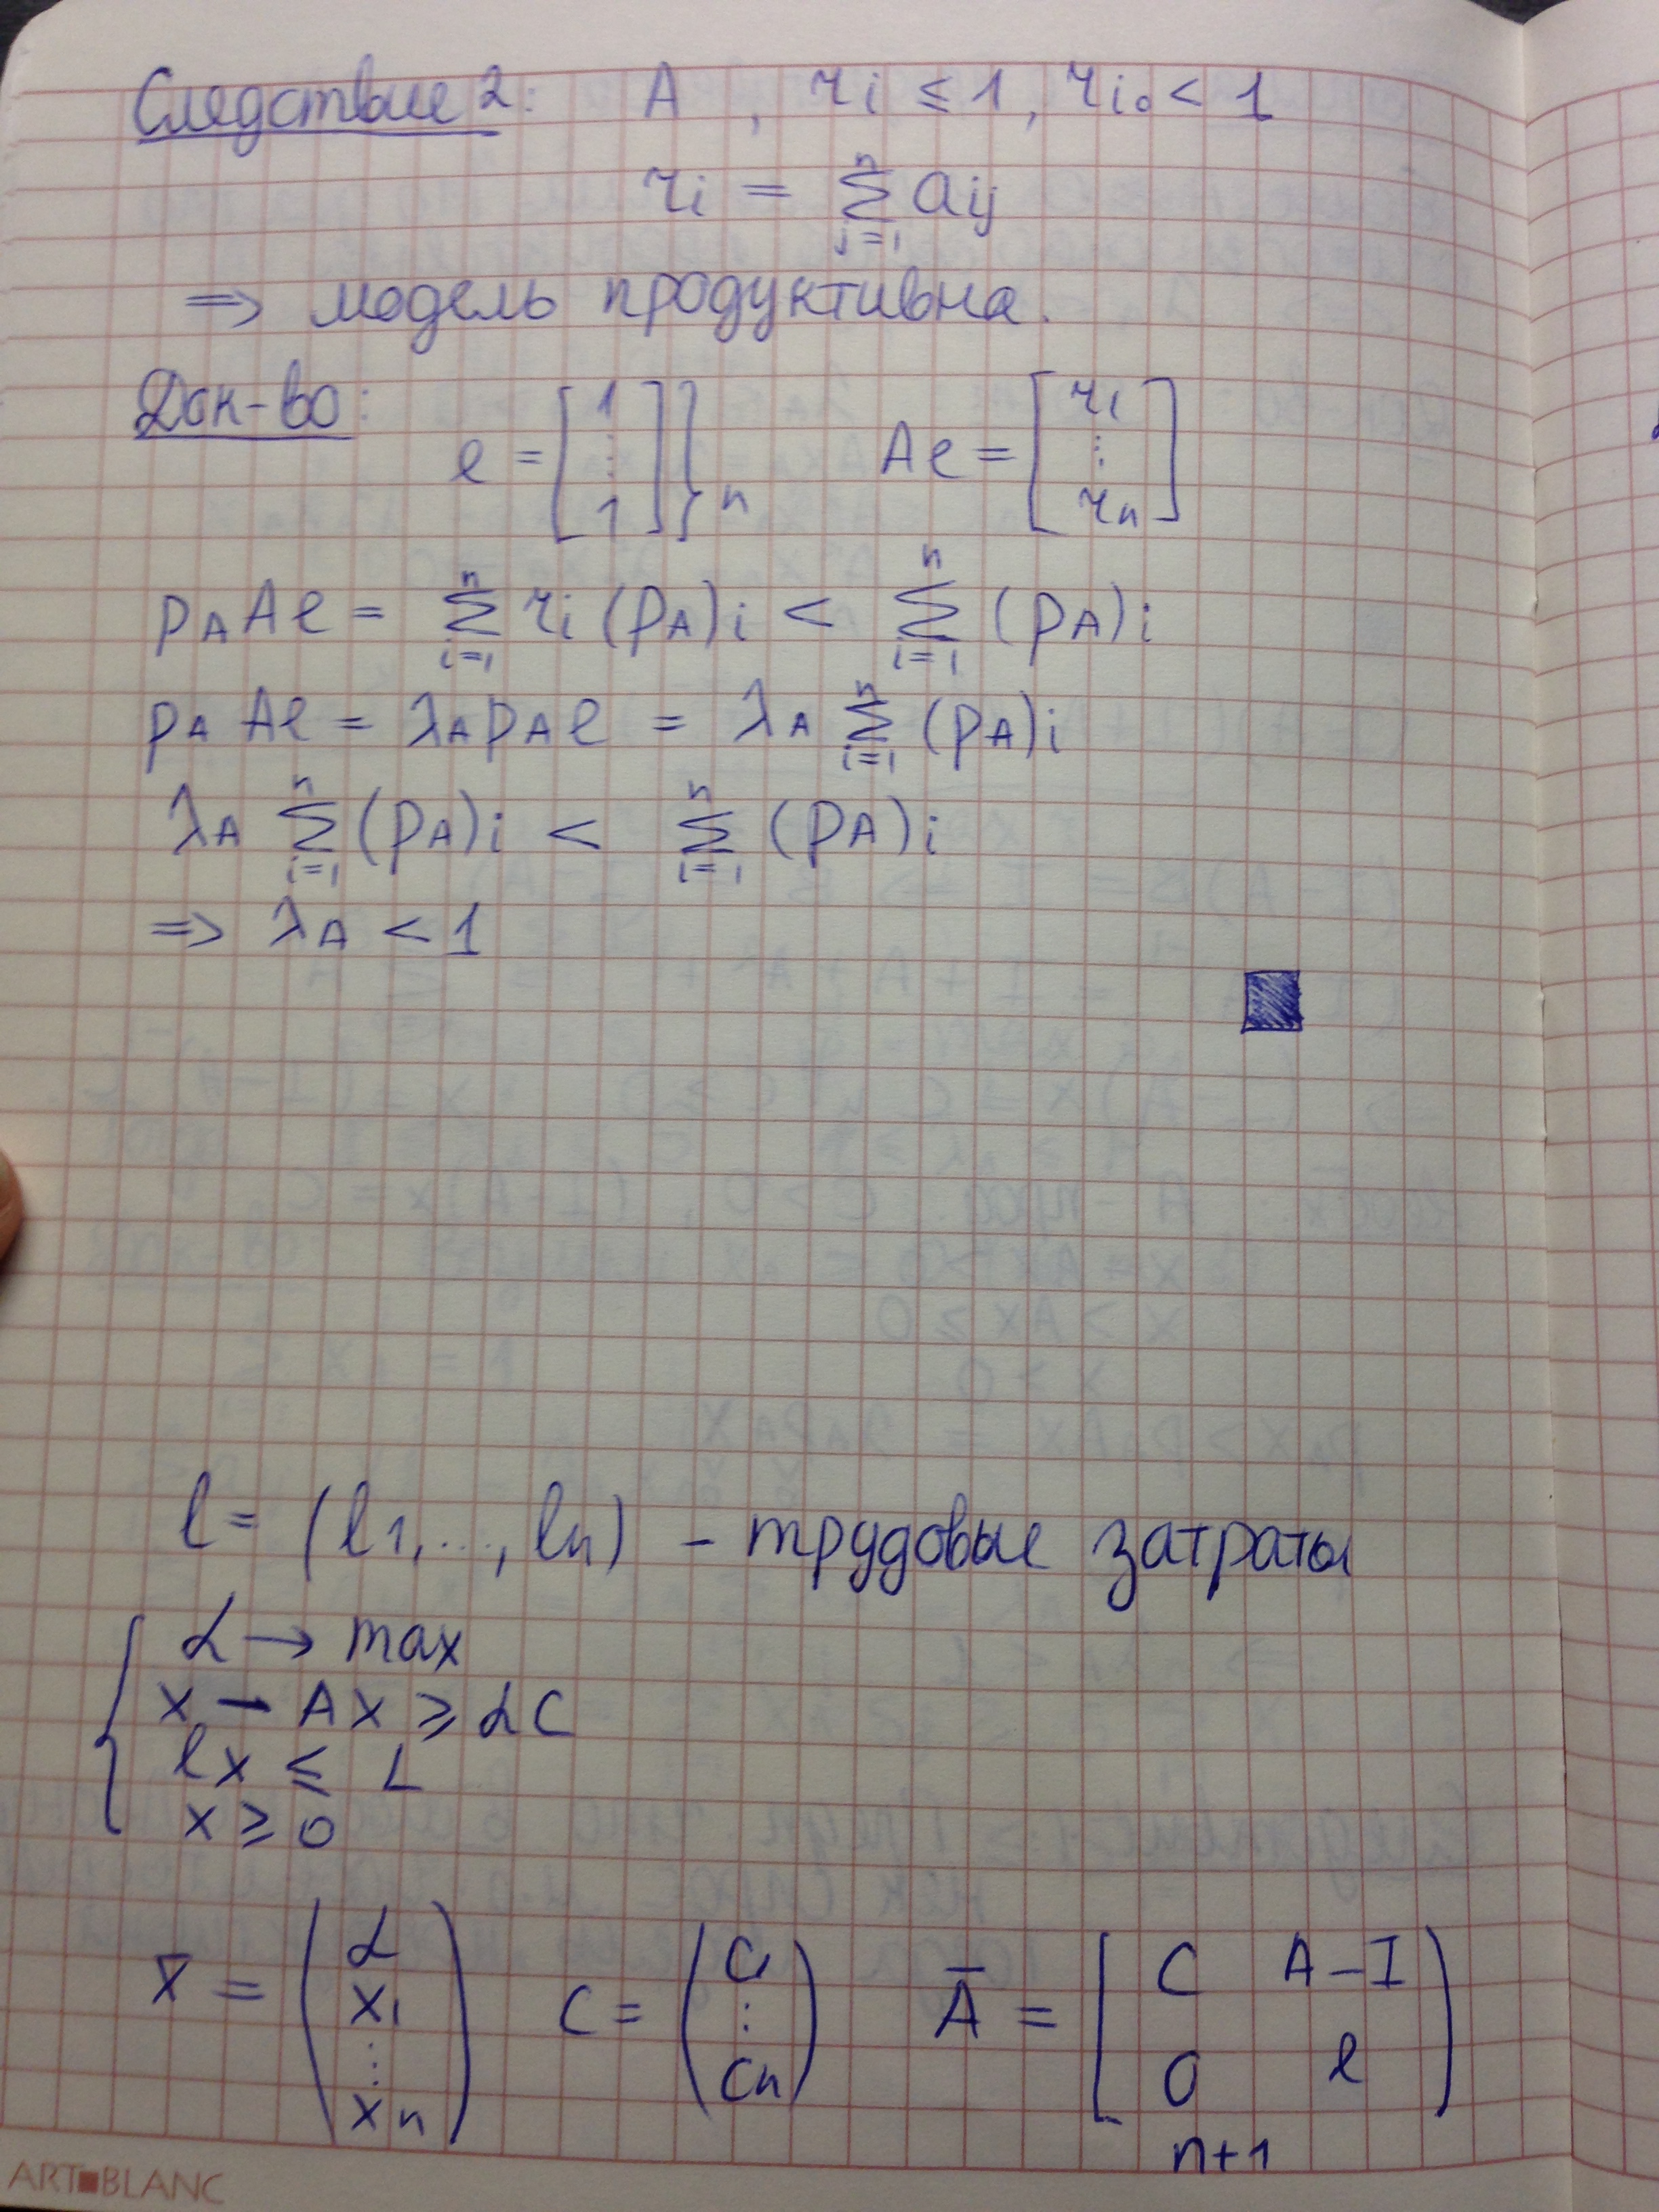 Следствие 2: A , r_i ≤ 1, r_{i_0} < 1
r_i = \sum_{j=1}^{n} a_{ij}
⇒ модель продуктивна.
Док-во:
e = [1 ⋮ 1]}_n Ae = [r_1 ⋮ r_n]
p_A Ae = \sum_{i=1}^{n} r_i (p_A)_i < \sum_{i=1}^{n} (p_A)_i
p_A Ae = λ_A p_A e = λ_A \sum_{i=1}^{n} (p_A)_i
λ_A \sum_{i=1}^{n} (p_A)_i < \sum_{i=1}^{n} (p_A)_i
⇒ λ_A < 1
l = (l_1, ..., l_n) – трудовые затраты
{ α → max
x – Ax ≥ αC
lx ≤ L
x ≥ 0
x̄ = (α x_1 ⋮ x_n) C = (C_1 ⋮ C_n) Ā = [C A–I 0 l)
n+1
ART■BLANC